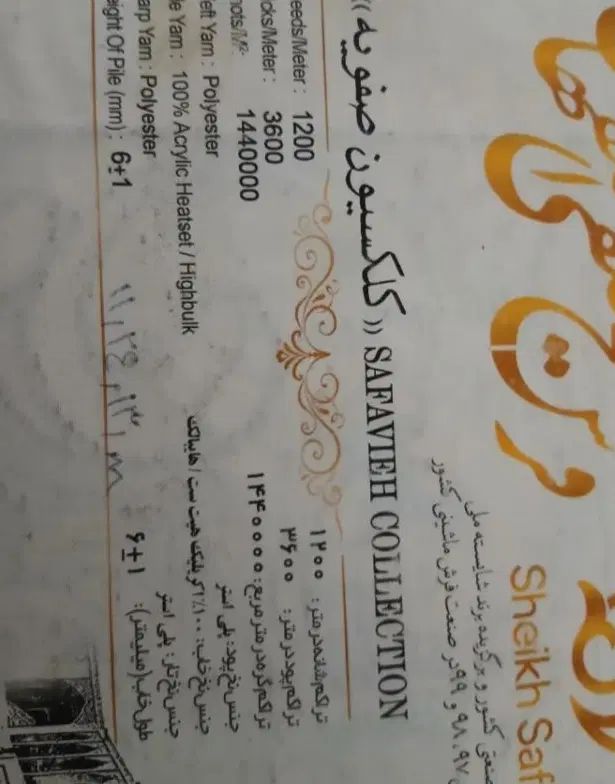 فرش
Sheikh Saf
کشور و برگزیده برند شایسته ملی
۹۷، ۹۸ و ۹۹ در صنعت فرش ماشینی کشور
«کلکسیون صفویه» SAFAVIEH COLLECTION
eeds/Meter : 1200 تراکم شانه در متر: ۱۲۰۰
cks/Meter : 3600 تراکم پود در متر: ۳۶۰۰
nots/M²: 1440000 تراکم گره در متر مربع: ۱۴۴۰۰۰۰
eft Yarn : Polyester جنس نخ پود: پلی استر
le Yarn : 100% Acrylic Heatset / Highbulk جنس نخ خاب: ۱۰۰٪ اکریلیک هیت ست / هایبالک
arp Yarn : Polyester جنس نخ تار: پلی استر
eight Of Pile (mm) : 6±1 طول خاب (میلیمتر): ۶±۱